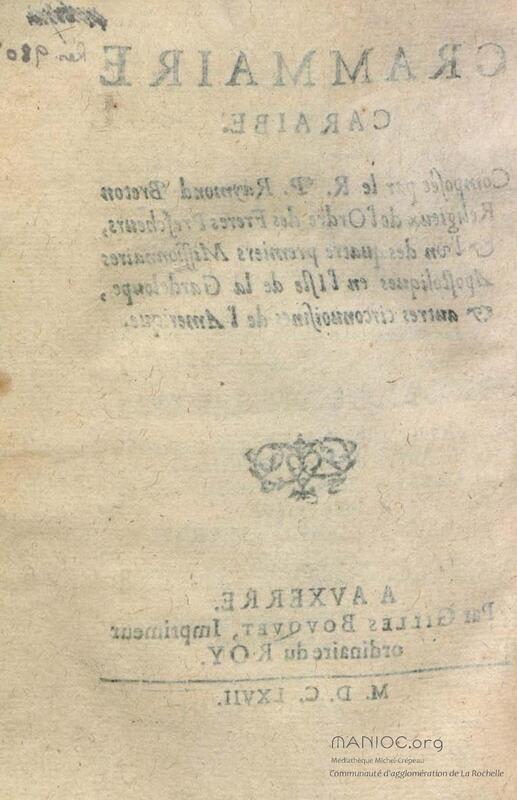 Res 980
GRAMMAIRE
CARAIBE.
Composée par le R. P. Raymond Breton
Religieux de l'Ordre des Freres Prescheurs,
& l'vn des quatre premiers Missionnaires
Apostoliques en l'Isle de la Gardeloupe,
& autres circonuoisines de l'Amerique.
A AVXERRE.
Par GILLES BOVQVET, Imprimeur
ordinaire du ROY.
M. D. C. LXVII.
MANIOC.org
Médiathèque Michel-Crépeau
Communauté d'agglomération de La Rochelle